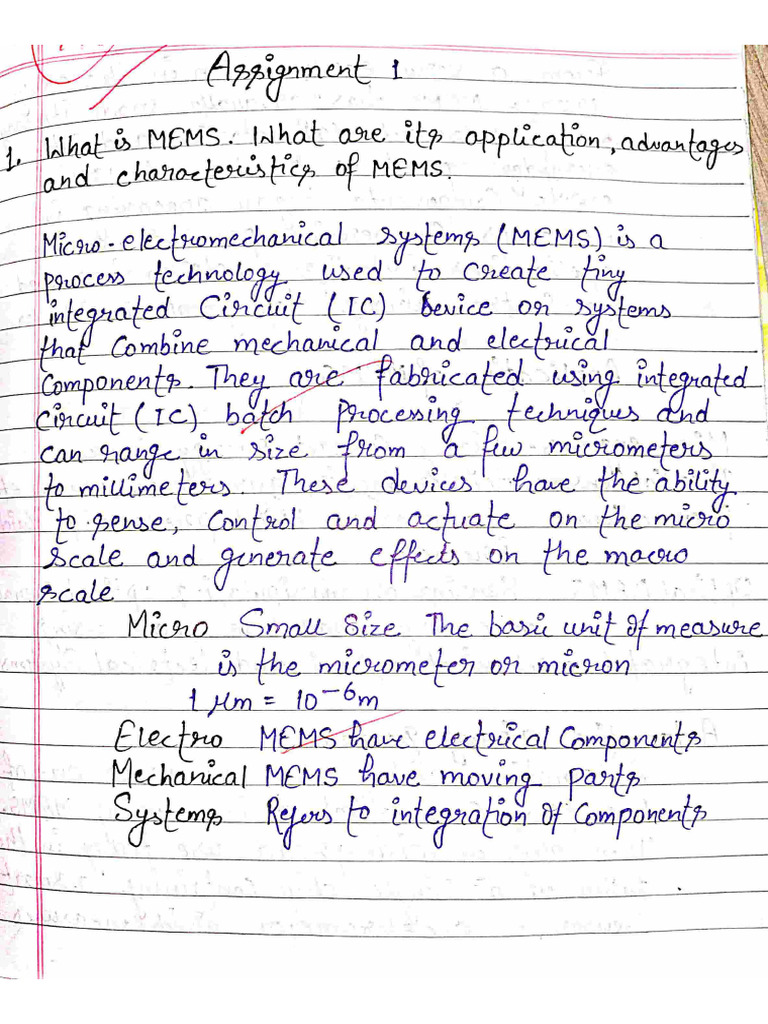 Assignment 1
1. What is MEMS. What are its application, advantages
and characteristics of MEMS.
Micro-electromechanical systems (MEMS) is a
process technology used to create tiny
integrated Circuit (IC) device or systems
that Combine mechanical and electrical
Components. They are fabricated using integrated
circuit (IC) batch processing techniques and
can range in size from a few micrometers
to millimeters. These devices have the ability
to sense, Control and actuate on the micro
scale and generate effects on the macro
scale
Micro Small Size The basic unit of measure
is the micrometer or micron
1 μm = 10⁻⁶m
Electro MEMS have electrical Components
Mechanical MEMS have moving parts
Systems Refers to integration of Components